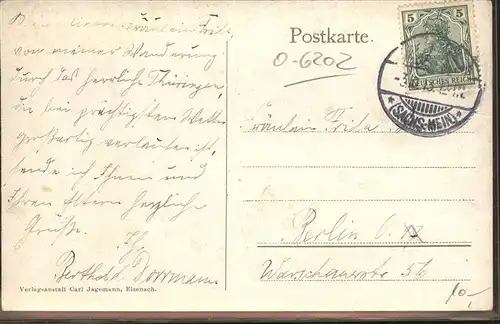 Postkarte.
0-6202
5 5
DEUTSCHES REICH
(SACHS-MEIN)
Fräulein Frida
von meiner Wanderung
durch das herrliche Thüringen,
die bei prächtigstem Wetter
großartig verlaufen ist,
sende ich Ihnen und
Ihren Eltern herzliche
Grüße.
Ihr
Berthold Dorrmann
Fräulein Frida
Berlin O.
Warschauerstr 56
10,-
Verlagsanstalt Carl Jagemann, Eisenach.